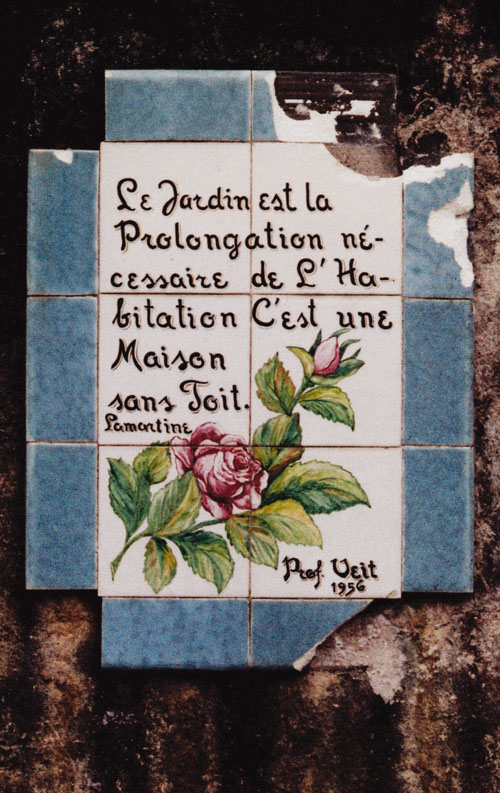 Le Jardin est la
Prolongation né-
cessaire de L' Ha-
bitation C'est une
Maison
sans Toit.
Lamartine
Prof. Veit
1956